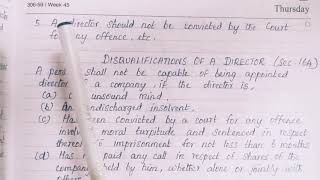 306-59 / Week 45
Thursday
5. A director should not be convicted by the Court
for any offence, etc.
DISQUALIFICATIONS OF A DIRECTOR (Sec 164)
A pers shall not be capable of being appointed
director of a company, if the director is,
(a) Of unsound mind,
(b) An undischarged insolvent.
(c) Has been convicted by a court for any offence
involving moral turpitude and sentenced in respect
thereof to imprisonment for not less than 6 months
(d) Has paid any call in respect of shares of the
company held by him, whether alone or jointly with
others